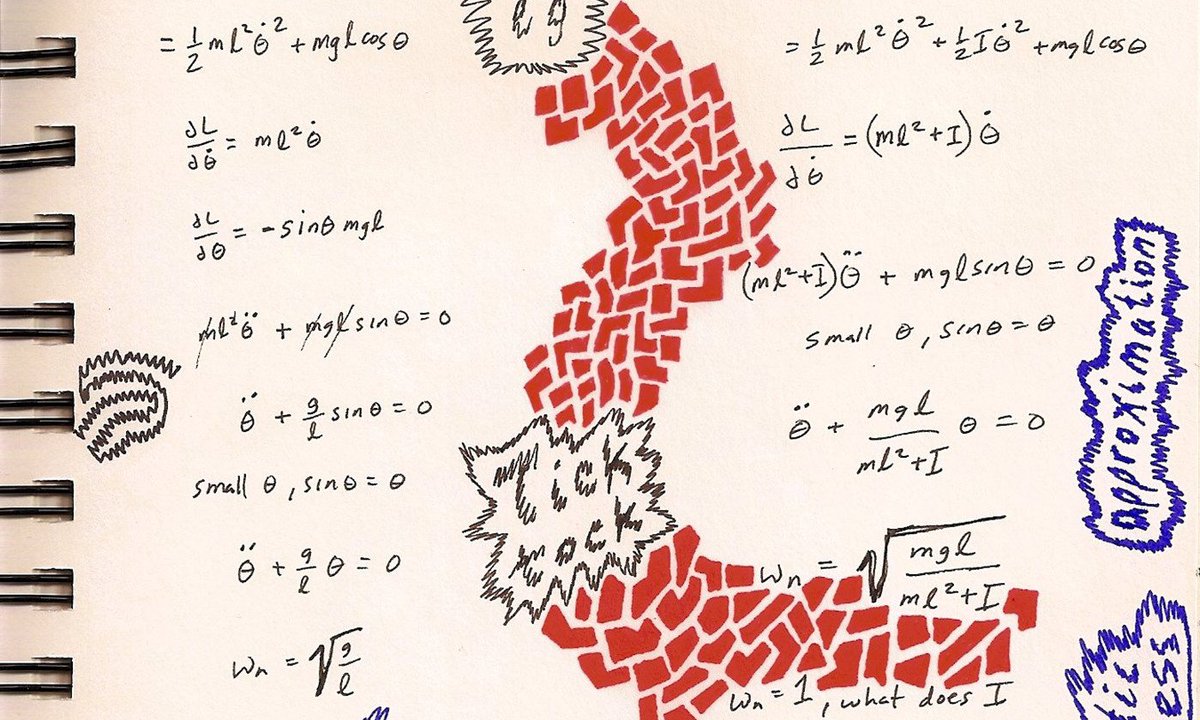 = 1/2 ml² θ̇² + mgl cos θ
∂L/∂θ̇ = ml² θ̇
∂L/∂θ = -sinθ mgl
ml² θ̈ + mgl sin θ = 0
θ̈ + g/l sin θ = 0
small θ, sinθ = θ
θ̈ + g/l θ = 0
ωn = √(g/l)
= 1/2 ml² θ̇² + 1/2 I θ̇² + mgl cos θ
∂L/∂θ̇ = (ml² + I) θ̇
(ml² + I) θ̈ + mgl sin θ = 0
small θ, sinθ = θ
θ̈ + mgl/(ml² + I) θ = 0
ωn = √(mgl/(ml² + I))
ωn = 1, what does I
approximation